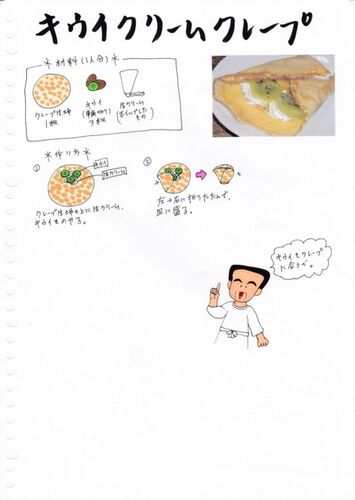 キウイクリームクレープ
＊材料(1人分)＊
クレープ生地
1枚
キウイ
(輪切り)
3枚
生クリーム
(ホイップしたもの)
＊作り方＊
①
キウイ
生クリーム
クレープ生地の上に生クリーム、
キウイをのせる。
②
左→右に折りたたんで、
皿に盛る。
キウイもクレープ
に合うで。